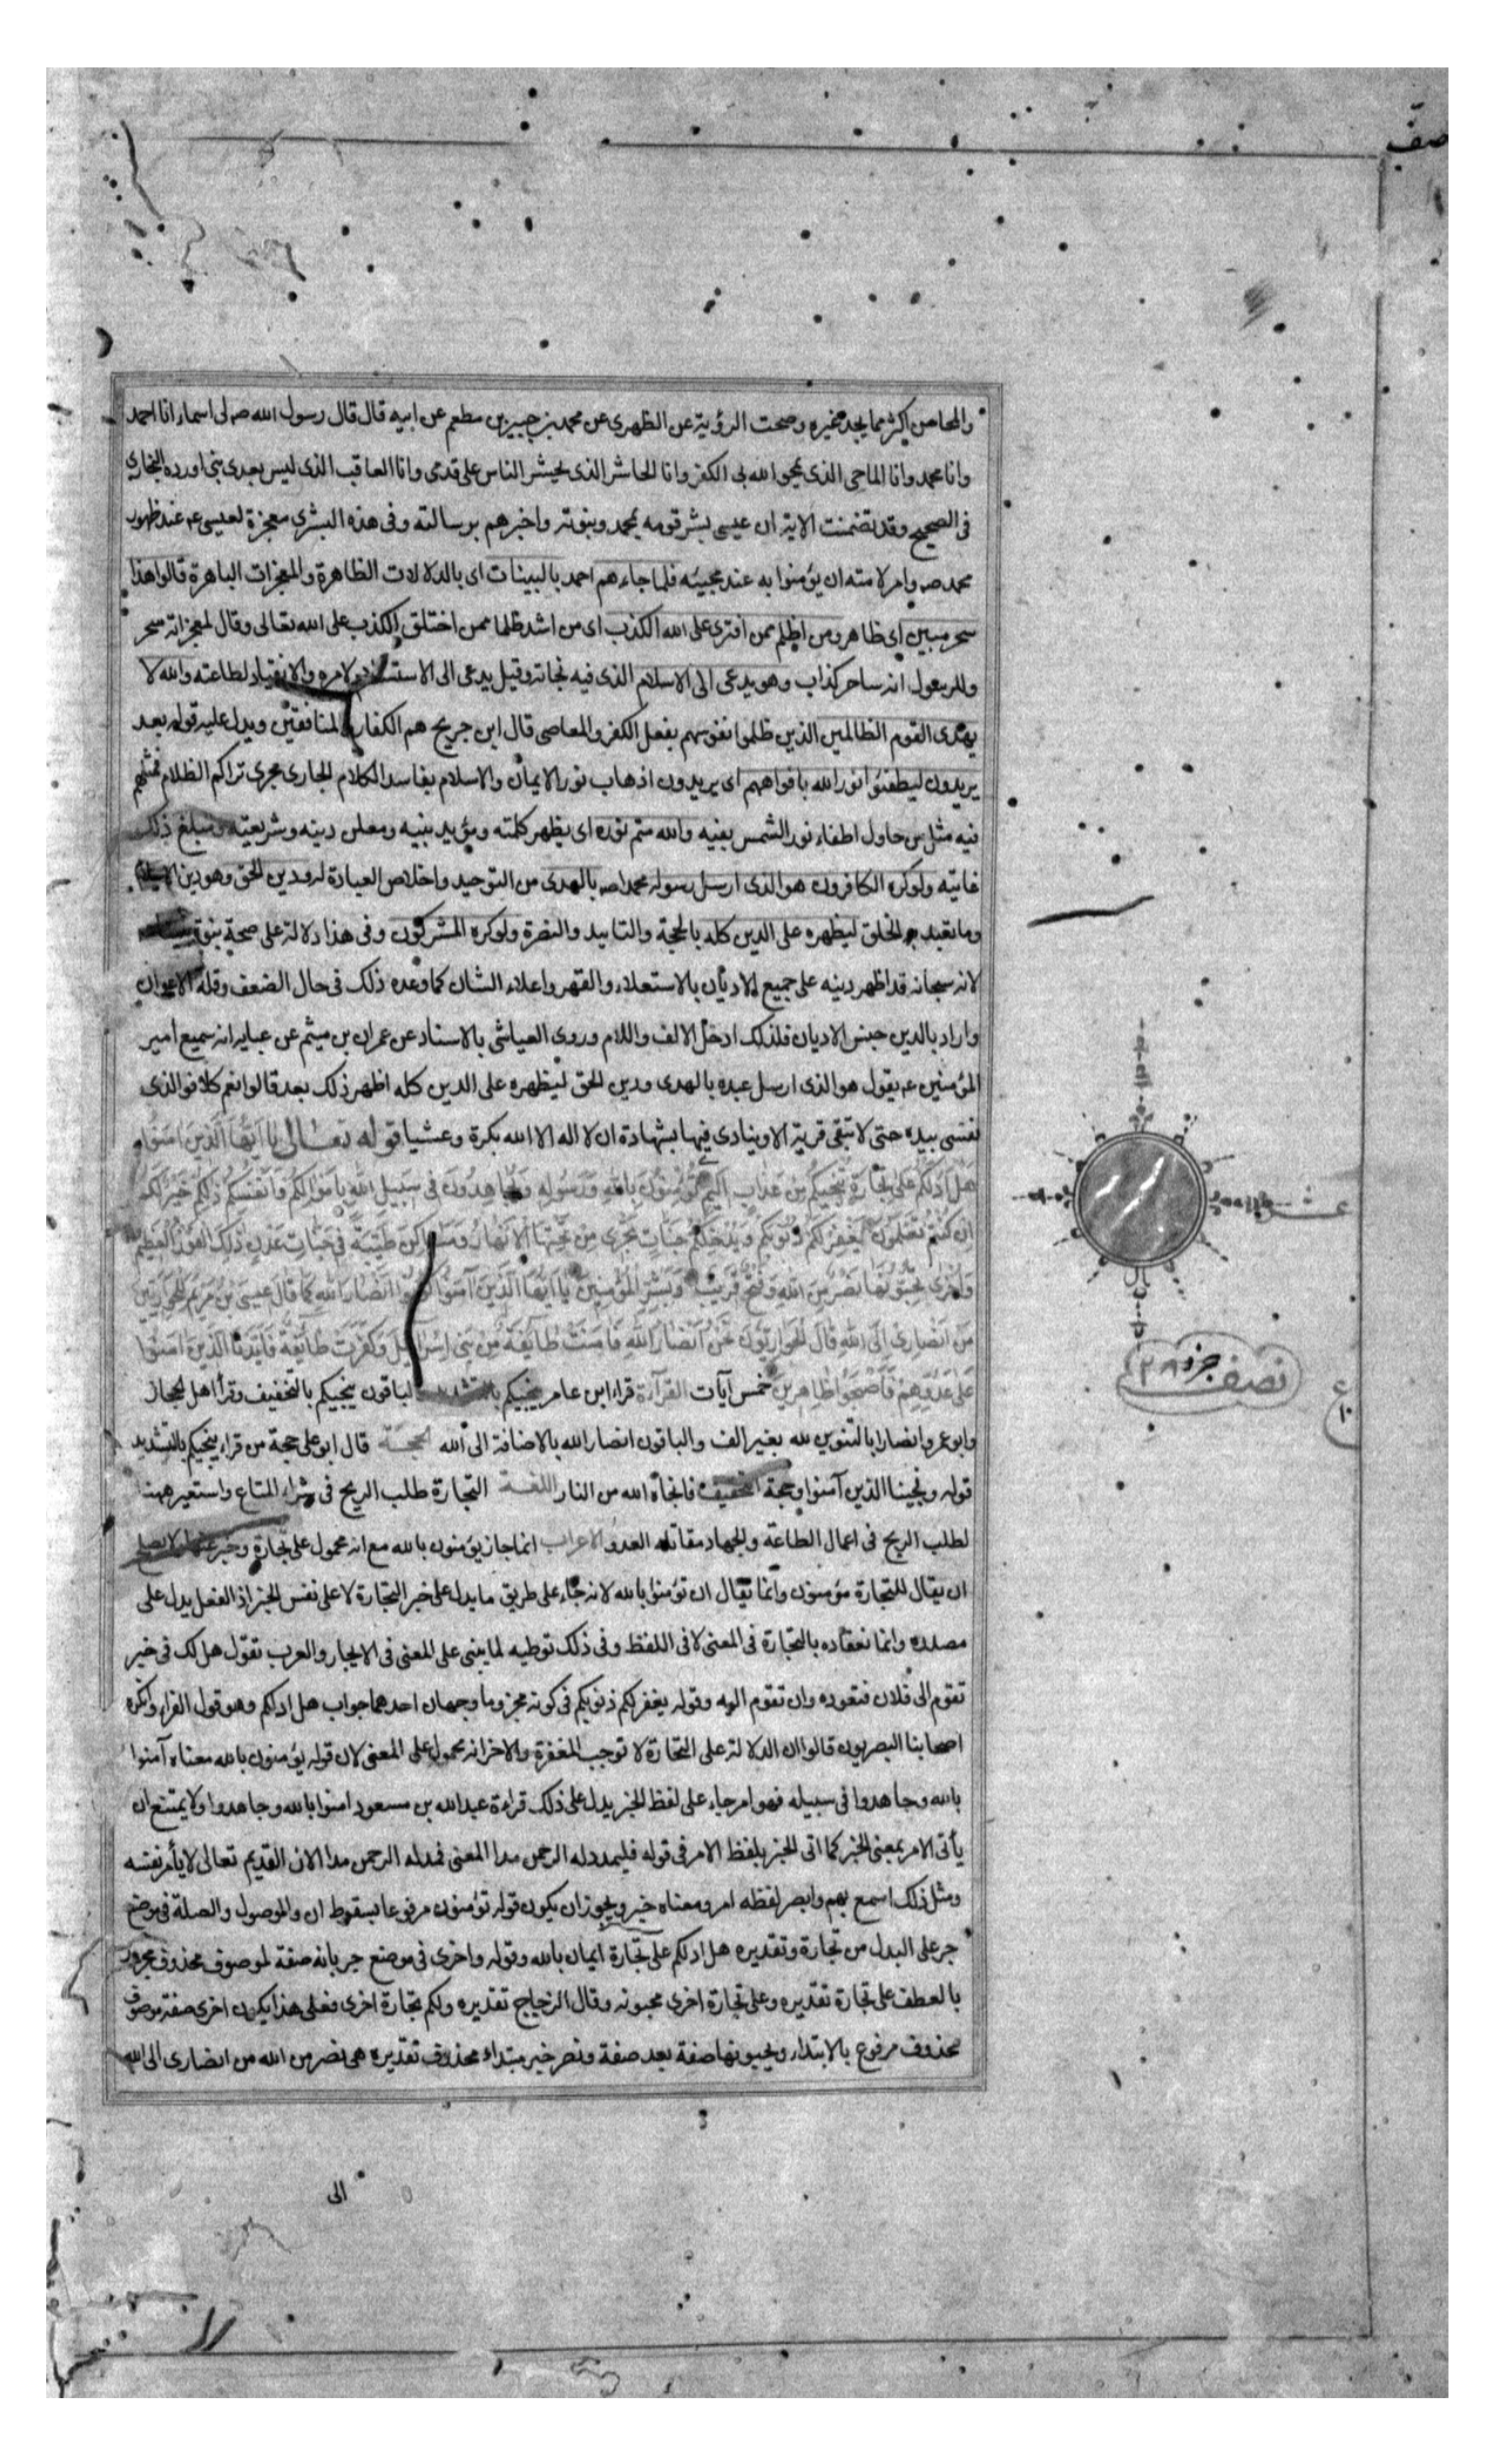 صف
والمحاسن اكثر مما يحمد غيره وصحت الرؤية عن الظهرى عن محمد بن جبير بن مطعم عن ابيه قال قال رسول الله ص لى اسماء انا احمد
وانا محمد وانا الماحى الذى يمحو الله بى الكفر وانا الحاشر الذى يحشر الناس على قدمى وانا العاقب الذى ليس بعدى بنى اورده البخارى
فى الصحيح وقد تضمنت الاية ان عيسى بشر قومه بمحمد وبنوته واخبرهم برسالته وفى هذه البشرى معجزة لعيسى عم عند ظهور
محمد ص وامر لامته ان يؤمنوا به عند مجيئه فلما جاءهم احمد بالبينات اى بالدلالات الظاهرة والمعجزات الباهرة قالوا هذا
سحر مبين اى ظاهر ومن اظلم ممن افترى على الله الكذب اى من اشد ظلما ممن اختلق الكذب على الله تعالى وقال لمعجزاته سحر
وللرسول انه ساحر كذاب وهو يدعى الى الاسلام الذى فيه نجاته وقيل يدعى الى الاستسلام لامره والانقياد لطاعته والله لا
يهدى القوم الظالمين الذين ظلموا نفوسهم بفعل الكفر والمعاصى قال ابن جريح هم الكفار المنافقين ويدل عليه قوله بعد
يريدون ليطفئوا نور الله بافواههم اى يريدون اذهاب نور الايمان والاسلام بفاسد الكلام الجارى مجرى تراكم الظلام فمثلهم
فيه مثل من حاول اطفاء نور الشمس بفيه والله متم نوره اى يظهر كلمته ويؤيد بنيه ومعلى دينه وشريعته ومبلغ ذلك
غايته ولو كره الكافرون هو الذى ارسل رسوله محمدا ص بالهدى من التوحيد واخلاص العبادة له ودين الحق وهو دين الاسلام
وما تعبد به الخلق ليظهره على الدين كله بالحجة والتاييد والنصرة ولو كره المشركون وفى هذا دلالة على صحة بنوة
لانه سبحانه قد اظهر دينه على جميع الاديان بالاستعلاء والقهر واعلاء الشان كما وعده ذلك فى حال الضعف وقلة الاعوان
واراد بالدين جنس الاديان فلذلك ادخل الالف واللام وروى العياشى بالاسناد عن عمران بن ميثم عن عبايه انه سميع امير
المؤمنين عم يقول هو الذى ارسل عبده بالهدى ودين الحق ليظهره على الدين كله اظهر ذلك بعد قالوا نعم كلا فوالذى
نفسى بيده حتى لا تبقى قرية الا وينادى فيها بشهادة ان لا اله الا الله بكرة وعشيا قوله تعالى يا ايها الذين امنوا
هل ادلكم على تجارة تنجيكم من عذاب اليم تؤمنون بالله ورسوله وتجاهدون فى سبيل الله باموالكم وانفسكم ذلكم خير لكم
ان كنتم تعلمون يغفر لكم ذنوبكم ويدخلكم جنات تجرى من تحتها الانهار ومساكن طيبة فى جنات عدن ذلك الفوز العظيم
واخرى تحبونها نصر من الله وفتح قريب وبشر المؤمنين يا ايها الذين آمنوا كونوا انصار الله كما قال عيسى بن مريم للحواريين
من انصارى الى الله قال الحواريون نحن انصار الله فامنت طائفة من بنى اسرائيل وكفرت طائفة فايدنا الذين امنوا
على عدوهم فاصبحوا ظاهرين خمس آيات القرآءة قراء ابن عامر ينجيكم بالتشديد الباقون ينجيكم بالتخفيف وقرأ اهل الحجاز
وابو عمرو انصارا بالتنوين لله بغير الف والباقون انصار الله بالاضافة الى الله الحجة قال ابو على حجة من قراء ينجيكم بالتشديد
قوله ونجينا الذين آمنوا وحجة التخفيف فانجاه الله من النار اللغة التجارة طلب الربح فى شراء المتاع واستعير ههنا
لطلب الربح فى اعمال الطاعة والجهاد مقاتلة العدو الاعراب انما جاز يؤمنون بالله مع انه محمول على تجارة وخبر عنها ولا يصلح
ان يقال للتجارة مؤمنون وانما يقال ان تؤمنوا بالله لانه جاء على طريق ما يدل على خبر التجارة لا على نفس الخبر اذ الفعل يدل على
مصدره وانما نعقاده بالتجارة فى المعنى لا فى اللفظ وفى ذلك توطيه لما يبنى على المعنى فى الايجاز والعرب تقول هل لك فى خير
تقوم الى فلان فتعوده وان تقوم اليه وقوله يغفر لكم ذنوبكم فى كونه مجزوما وجهان احدهما جواب هل ادلكم وهو قول الفراء وانكره
اصحابنا البصريون قالوا ان الدلالة على التجارة لا توجب المغفرة والاخر انه محمول على المعنى لان قوله يؤمنون بالله معناه آمنوا
بالله وجاهدوا فى سبيله فهو امر جاء على لفظ الخبر يدل على ذلك قراءة عبد الله بن مسعود امنوا بالله وجاهدوا ولا يمتنع ان
يأتى الامر بمعنى الخبر كما اتى الخبر بلفظ الامر فى قوله فليمدد له الرحمن مدا المعنى فمد له الرحمن مدا الان القديم تعالى لا يأمر نفسه
ومثل ذلك اسمع بهم وابصر لفظه امر ومعناه خبر ويجوز ان يكون قوله تؤمنون مرفوعا بسقوط ان والموصول والصلة فى موضع
جر على البدل من تجارة وتقديره هل ادلكم على تجارة ايمان بالله وقوله واخرى فى موضع جر بانه صفة لموصوف محذوف مجرور
بالعطف على تجارة تقديره وعلى تجارة اخرى محبونه وقال الزجاج تقديره ولكم تجارة اخرى فعلى هذا يكون اخرى صفة موصوف
محذوف مرفوع بالابتداء ويحبونها صفة بعد صفة ونصر خبر مبتداء محذوف تقديره هى نصر من الله من انصارى الى الله
عشر
نصف جزو ٢٨
ع
١٠
الى